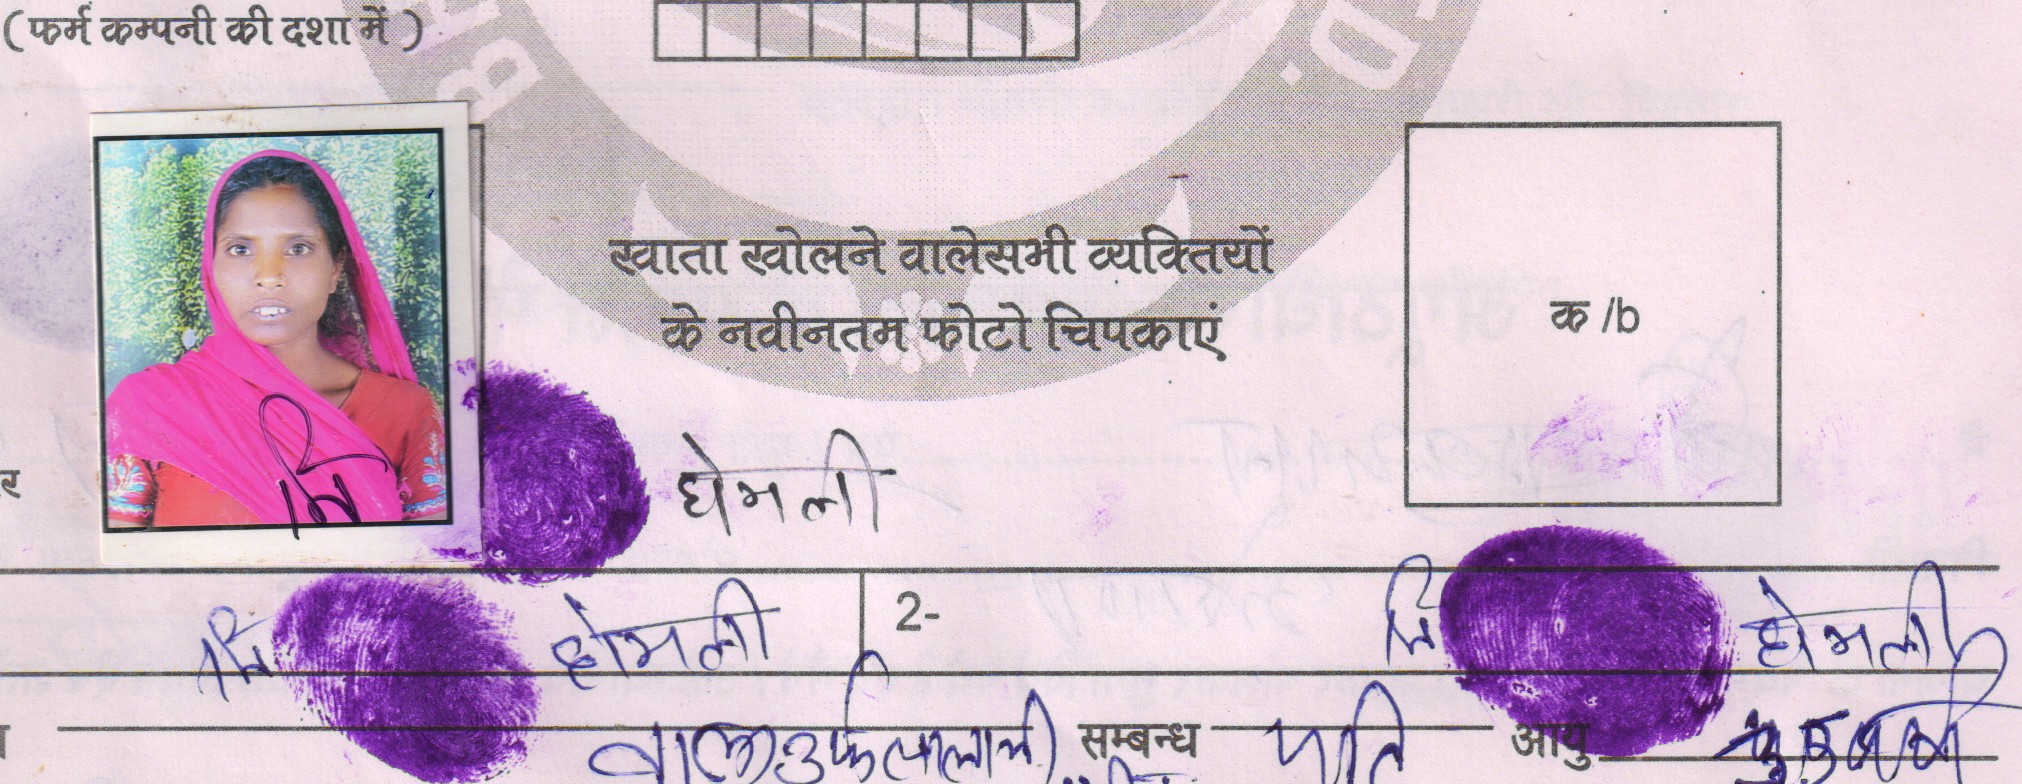 ( फर्म कम्पनी की दशा में )
खाता खोलने वालेसभी व्यक्तियों
के नवीनतम फोटो चिपकाएं
क /b
घेमली
नि घेमली
2- नि घेमली
सम्बन्ध पति आयु